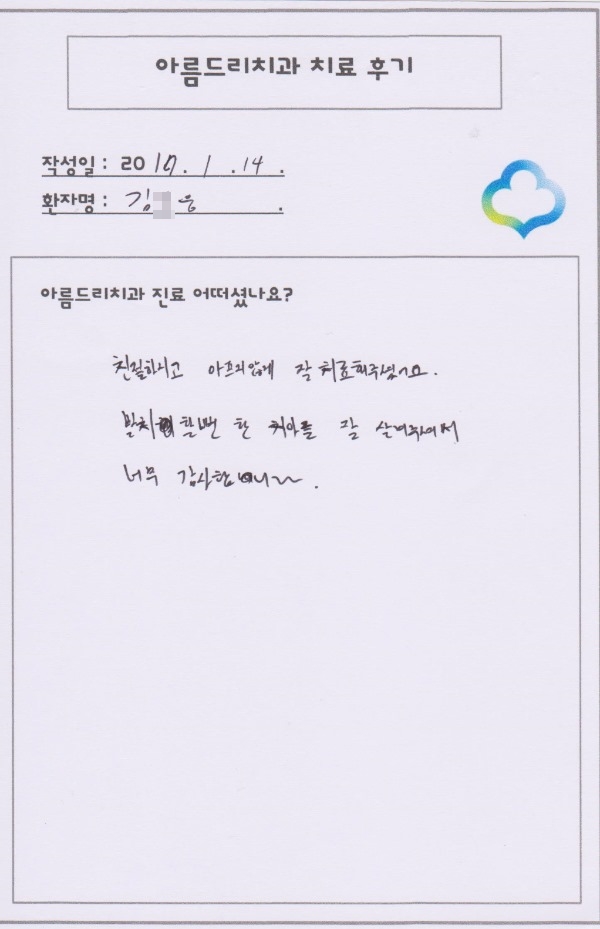 아름드리치과 치료 후기
작성일 : 20 . 1 . 14 .
환자명 : 김 웅 .
아름드리치과 진료 어떠셨나요?
친절하시고 아프지않게 잘 치료해주셨어요.
발치 할뻔 한 치아를 잘 살려주셔서
너무 감사합니다~ .